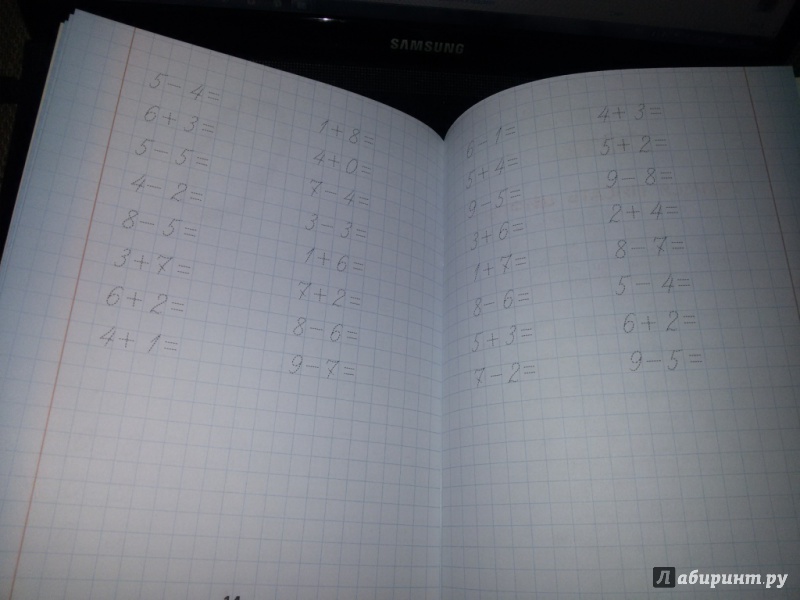 SAMSUNG
5 - 4 =
6 + 3 =
5 - 5 =
4 - 2 =
8 - 5 =
3 + 7 =
6 + 2 =
4 + 1 =
1 + 8 =
4 + 0 =
7 - 4 =
3 - 3 =
1 + 6 =
7 + 2 =
8 - 6 =
9 - 7 =
6 - 1 =
5 + 4 =
9 - 5 =
3 + 6 =
1 + 7 =
8 - 6 =
5 + 3 =
7 - 2 =
4 + 3 =
5 + 2 =
9 - 8 =
2 + 4 =
8 - 7 =
5 - 4 =
6 + 2 =
9 - 5 =
Лабиринт.ру